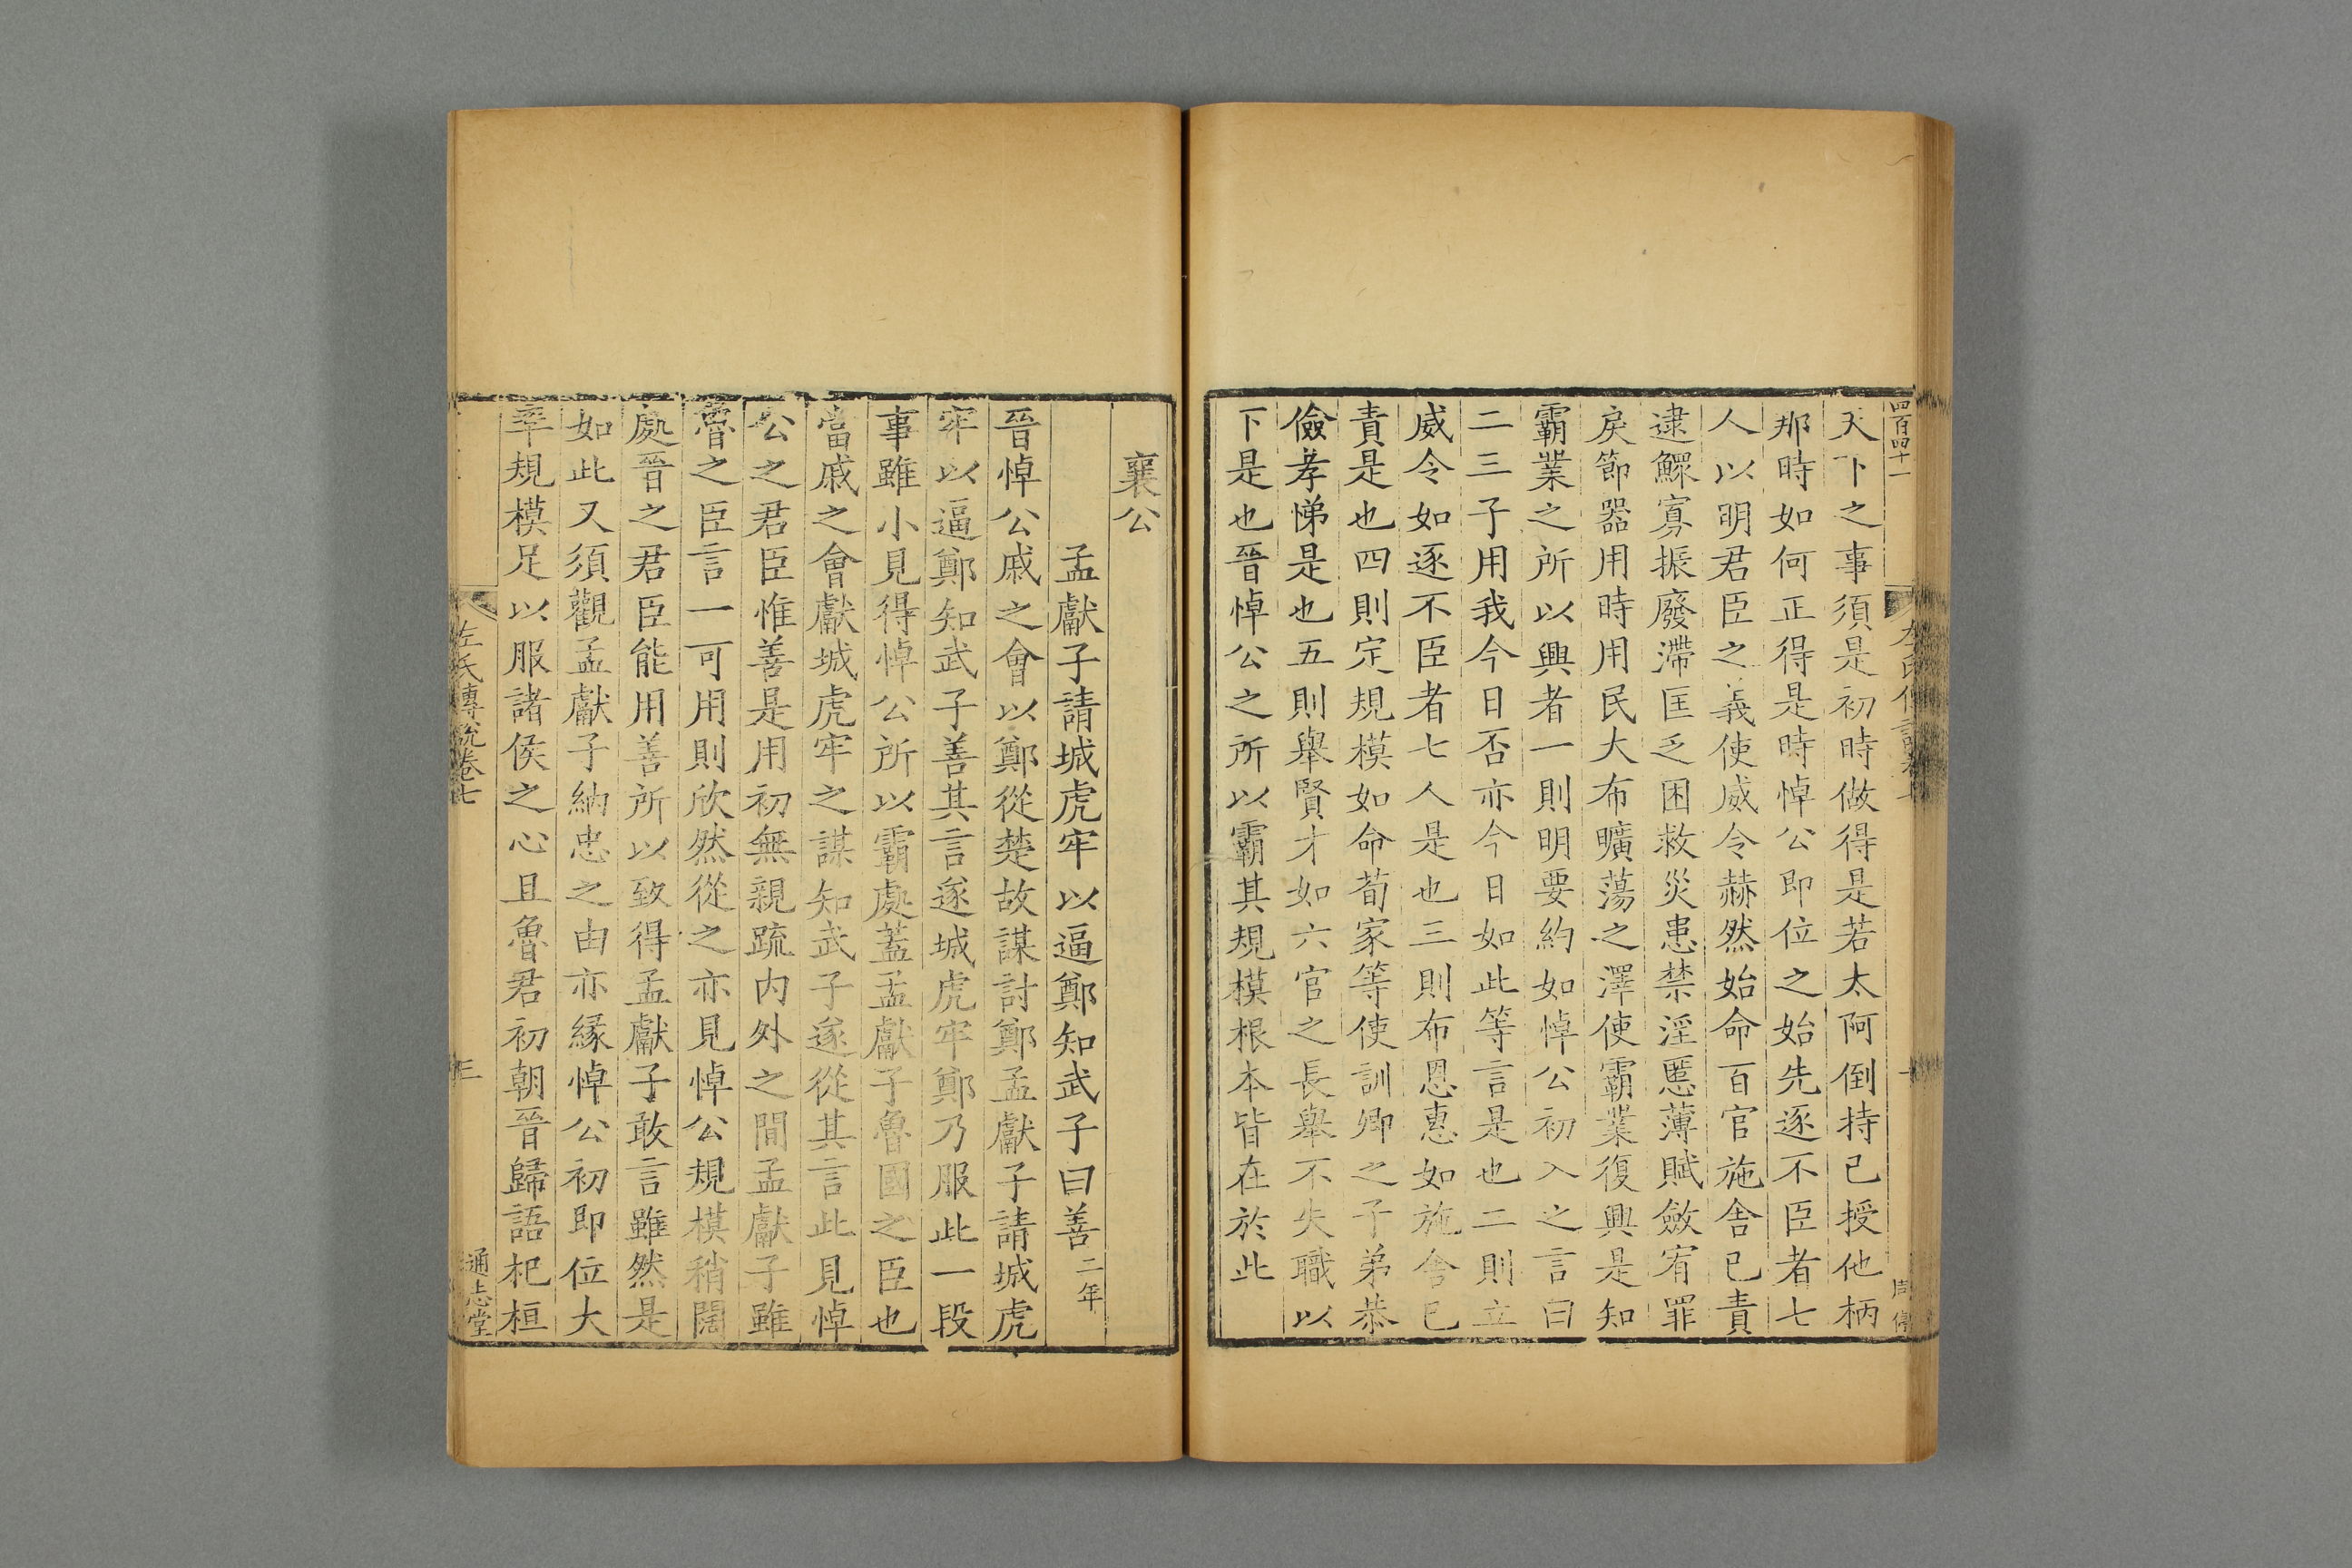 四百四十一
天下之事須是初時做得是若太阿倒持已授他柄
那時如何正得是時悼公即位之始先逐不臣者七
人以明君臣之義使威令赫然始命百官施舍已責
逮鰥寡振廢滯匡乏困救災患禁淫慝薄賦斂宥罪
戾節器用時用民大布曠蕩之澤使霸業復興是知
霸業之所以興者一則明要約如悼公初入之言曰
二三子用我今日否亦今日如此等言是也二則立
威令如逐不臣者七人是也三則布恩惠如施舍已
責是也四則定規模如命荀家等使訓卿之子弟恭
儉孝悌是也五則舉賢才如六官之長舉不失職以
下是也晉悼公之所以霸其規模根本皆在於此
襄公
孟獻子請城虎牢以逼鄭知武子曰善二年
晉悼公戚之會以鄭從楚故謀討鄭孟獻子請城虎
牢以逼鄭知武子善其言遂城虎牢鄭乃服此一段
事雖小見得悼公所以霸處蓋孟獻子魯國之臣也
當戚之會獻城虎牢之謀知武子遂從其言此見悼
公之君臣惟善是用初無親疏内外之間孟獻子雖
魯之臣言一可用則欣然從之亦見悼公規模稍闊
處晉之君臣能用善所以致得孟獻子敢言雖然是
如此又須觀孟獻子納忠之由亦緣悼公初即位大
率規模足以服諸侯之心且魯君初朝晉歸語杞桓
左氏傳說卷七
三
通志堂